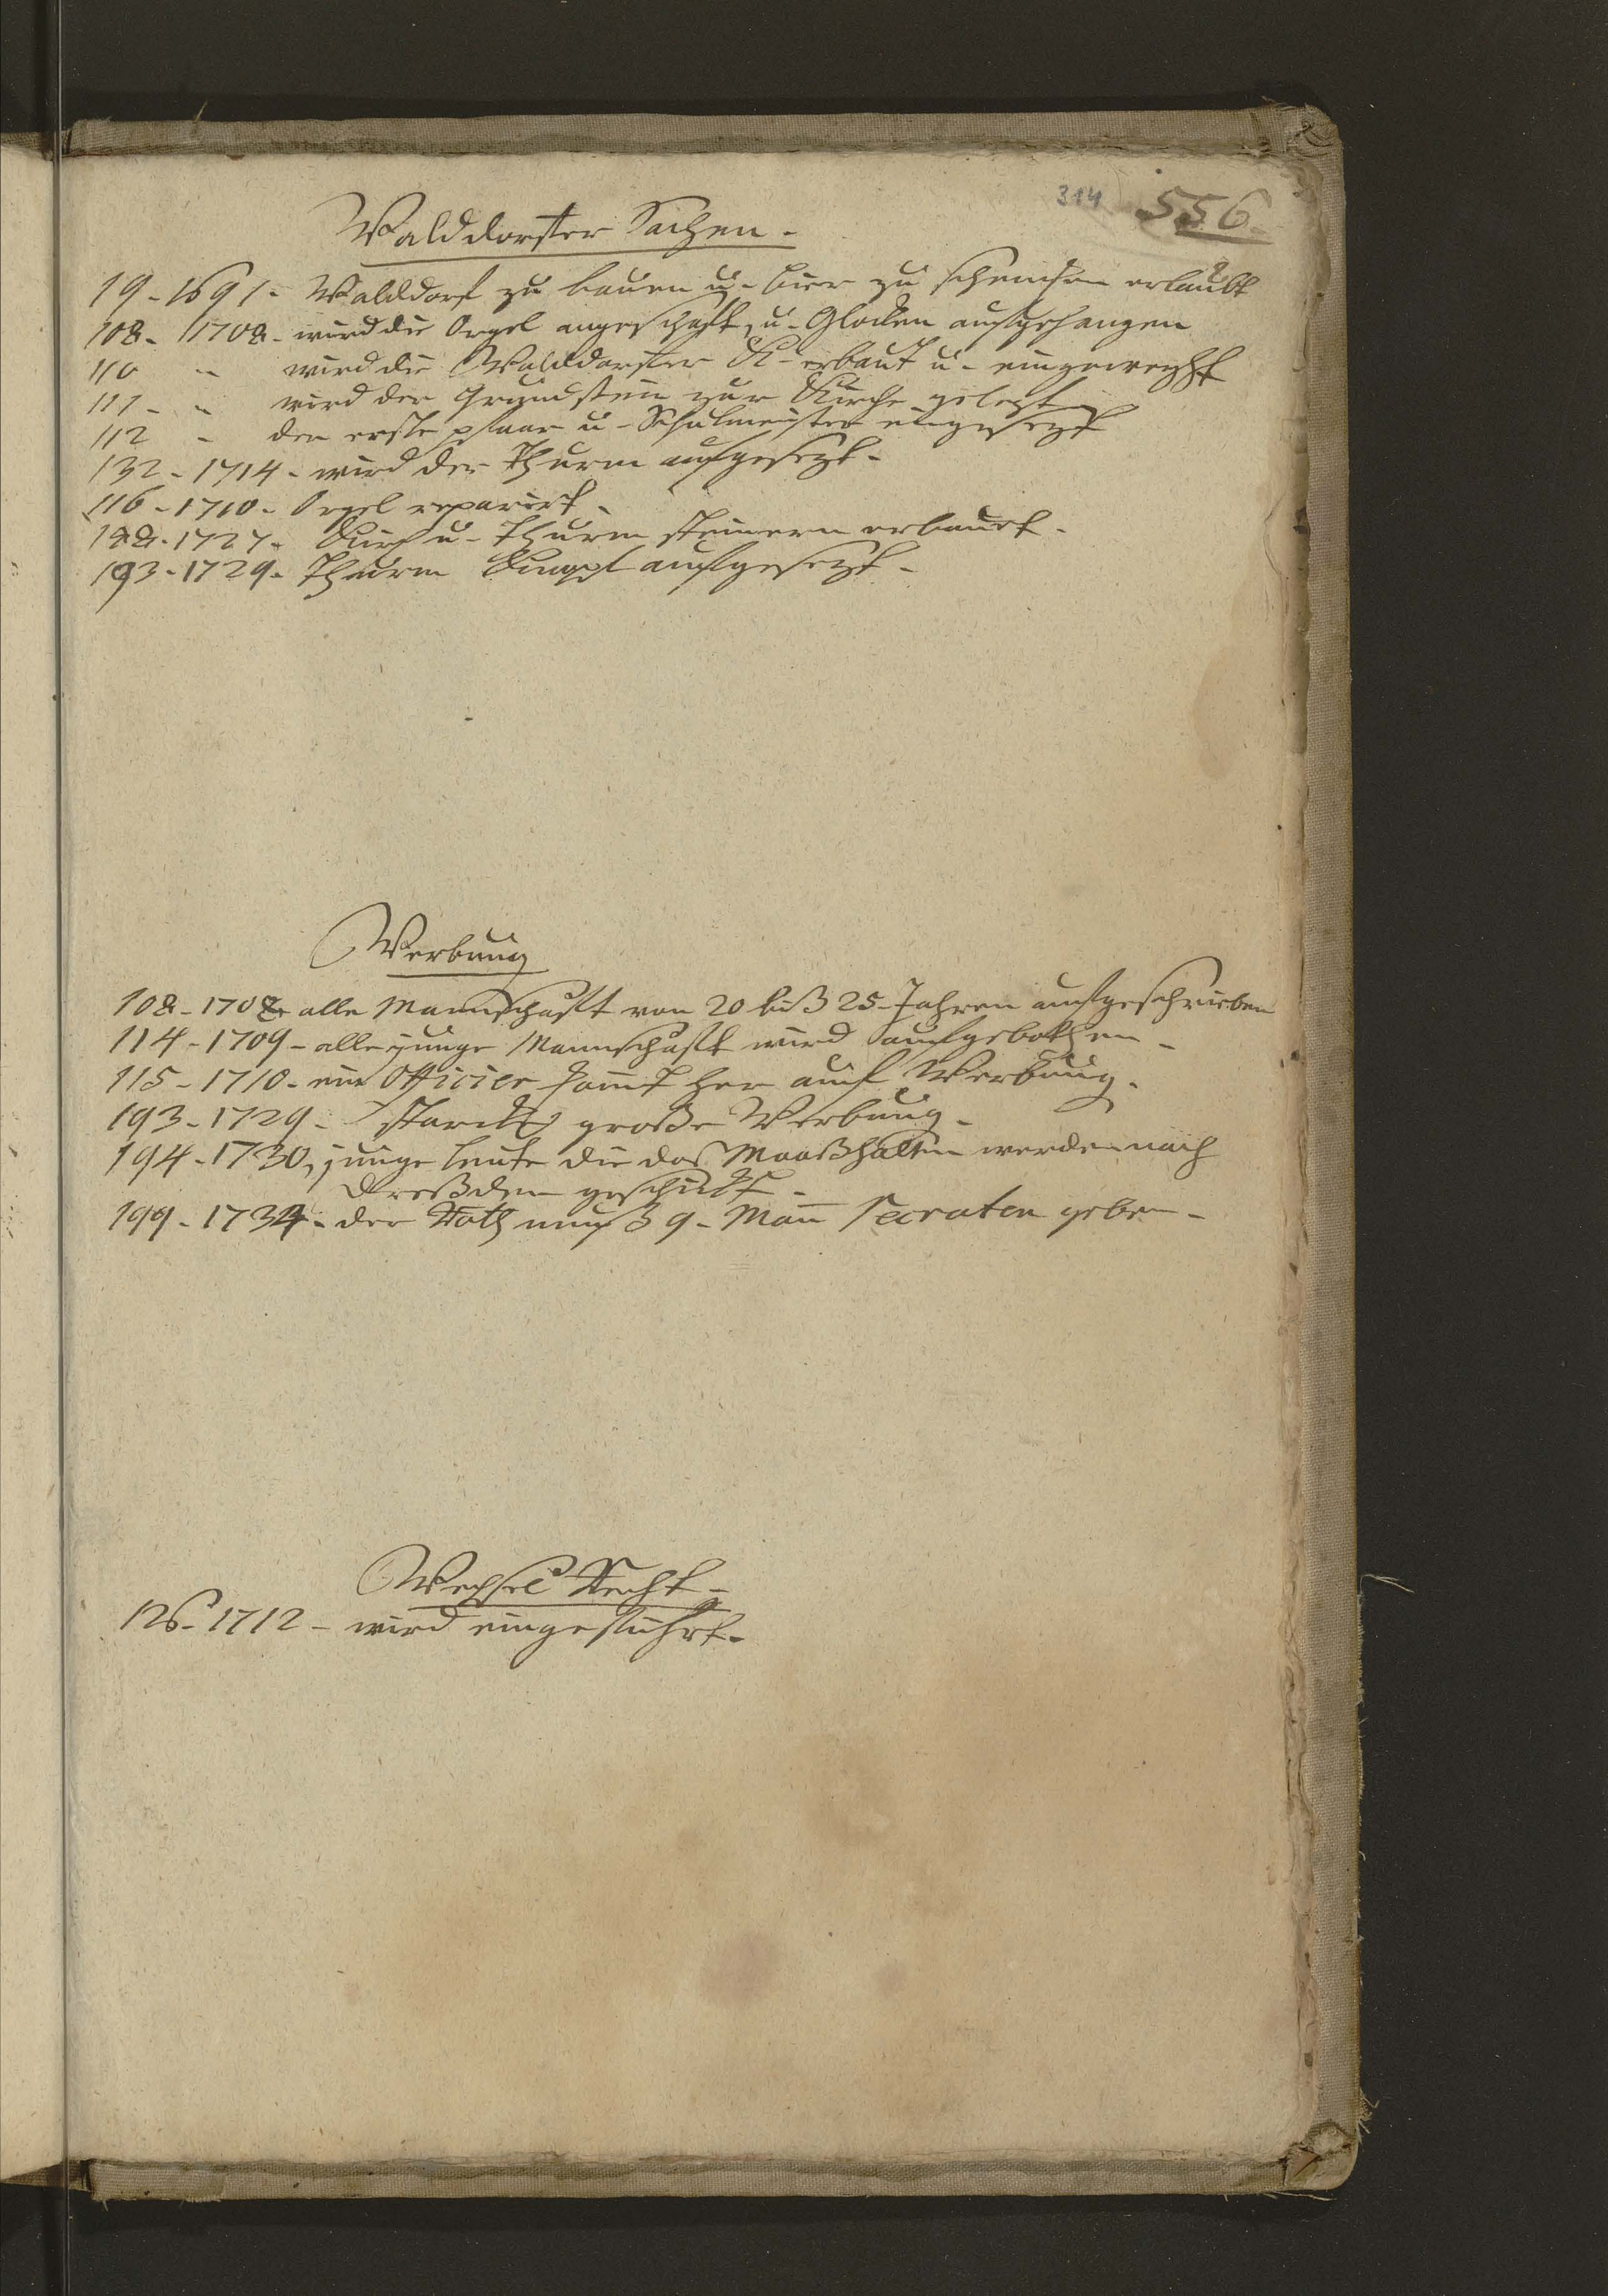 314 556.
Walddorfer Sachen.
19 - 1691 - Walddorf zu bauen u. bier zu schencken erlaubt
108 - 1708 - wird die Orgel angeschaft, u. Glocken aufgehangen
110 " wird die Walddorfer K. erbaut u. eingeweyht
111 - " wird der Grundstein zur Kirche gelegt
112 " der erste pfaar u. Schulmeister eingesezt
132 - 1714 - wird der Thurm aufgesezt.
116 - 1710 - Orgel reparirt.
188 - 1727 - Kirch u. Thurm steinern erbaut.
193 - 1729 - Thurm Knopf aufgesezt.
Werbung
108 - 1708 - alle Mannschafft von 20 biß 25 Jahren aufgeschrieben
114 - 1709 - alle junge Mannschaft wird aufgebothen -
115 - 1710 - ein Officier komt her auf Werbung.
193 - 1729 - starcke große Werbung.
194 - 1730, junge leute die das Maaß halten werden nach
Dreßden geschickt -
199 - 1734 - der Rath muß 9 - Man Recruten geben -
Wechsel Recht -
126 - 1712 - wird eingeführt.